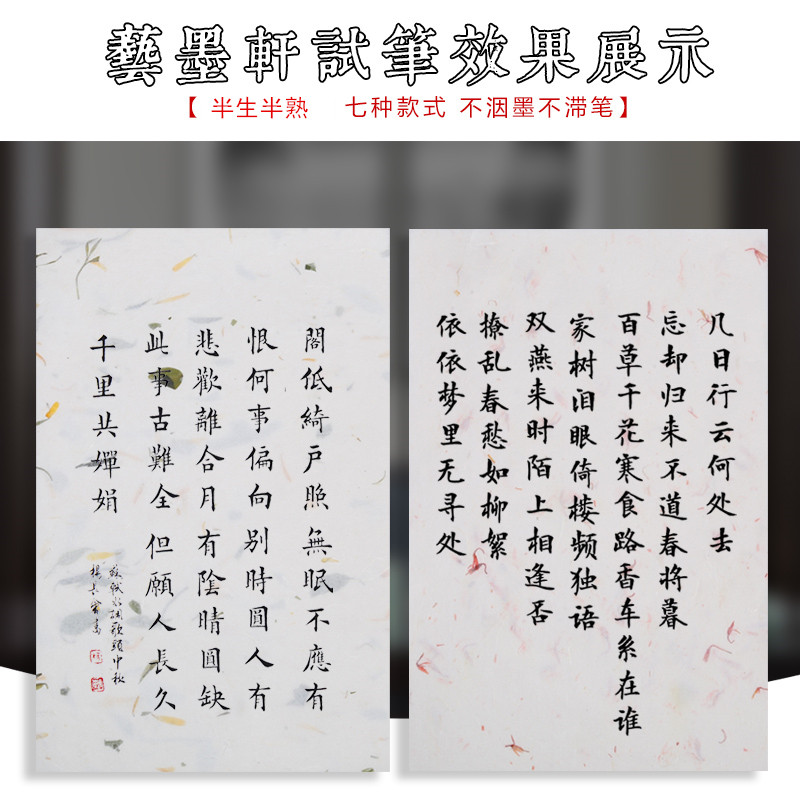 藝墨軒試筆效果展示
【 半生半熟 七种款式 不洇墨不滞笔】
閣低綺戶照無眠不應有
恨何事偏向别時圓人有
悲歡離合月有陰晴圓缺
此事古難全但願人長久
千里共嬋娟
蘇軾水調歌頭中秋
几日行云何处去
忘却归来不道春将暮
百草千花寒食路香车系在谁
家树泪眼倚楼频独语
双燕来时陌上相逢否
撩乱春愁如柳絮
依依梦里无寻处